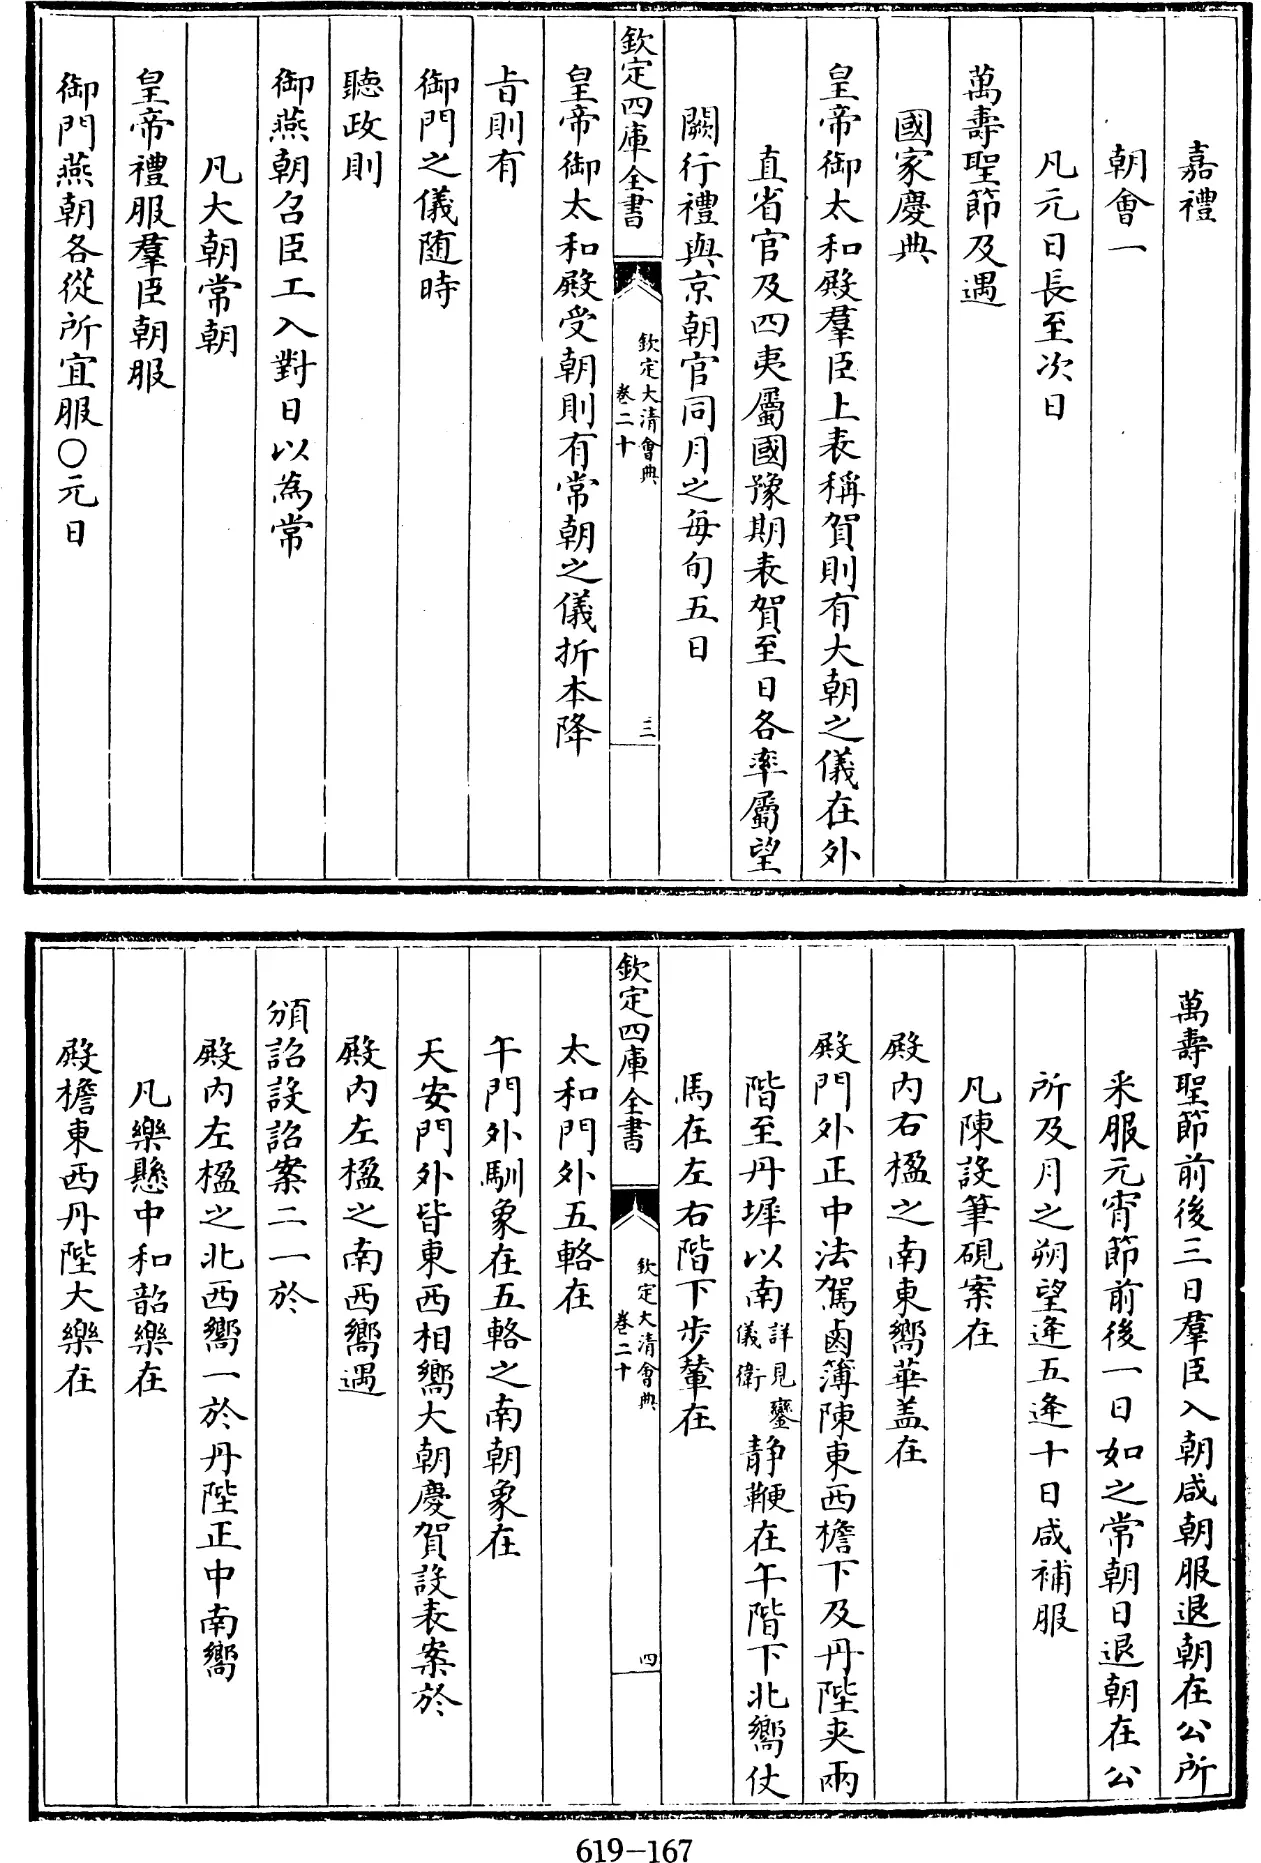 嘉禮
朝會一
凡元日長至次日
萬壽聖節及遇
國家慶典
皇帝御太和殿羣臣上表稱賀則有大朝之儀在外
直省官及四夷屬國豫期表賀至日各率屬望
闕行禮與京朝官同月之每旬五日
欽定四庫全書
欽定大清會典
卷二十
三
皇帝御太和殿受朝則有常朝之儀折本降
旨則有
御門之儀随時
聽政則
御燕朝召臣工入對日以為常
凡大朝常朝
皇帝禮服羣臣朝服
御門燕朝各從所宜服〇元日
萬壽聖節前後三日羣臣入朝咸朝服退朝在公所
采服元宵節前後一日如之常朝日退朝在公
所及月之朔望逢五逢十日咸補服
凡陳設筆硯案在
殿内右楹之南東嚮華盖在
殿門外正中法駕鹵簿陳東西檐下及丹陛夹兩
階至丹墀以南詳見鑾儀衛静鞭在午階下北嚮仗
馬在左右階下步輦在
欽定四庫全書
欽定大清會典
卷二十
四
太和門外五輅在
午門外馴象在五輅之南朝象在
天安門外皆東西相嚮大朝慶賀設表案於
殿内左楹之南西嚮遇
頒詔設詔案二一於
殿内左楹之北西嚮一於丹陛正中南嚮
凡樂懸中和韶樂在
殿檐東西丹陛大樂在
619-167